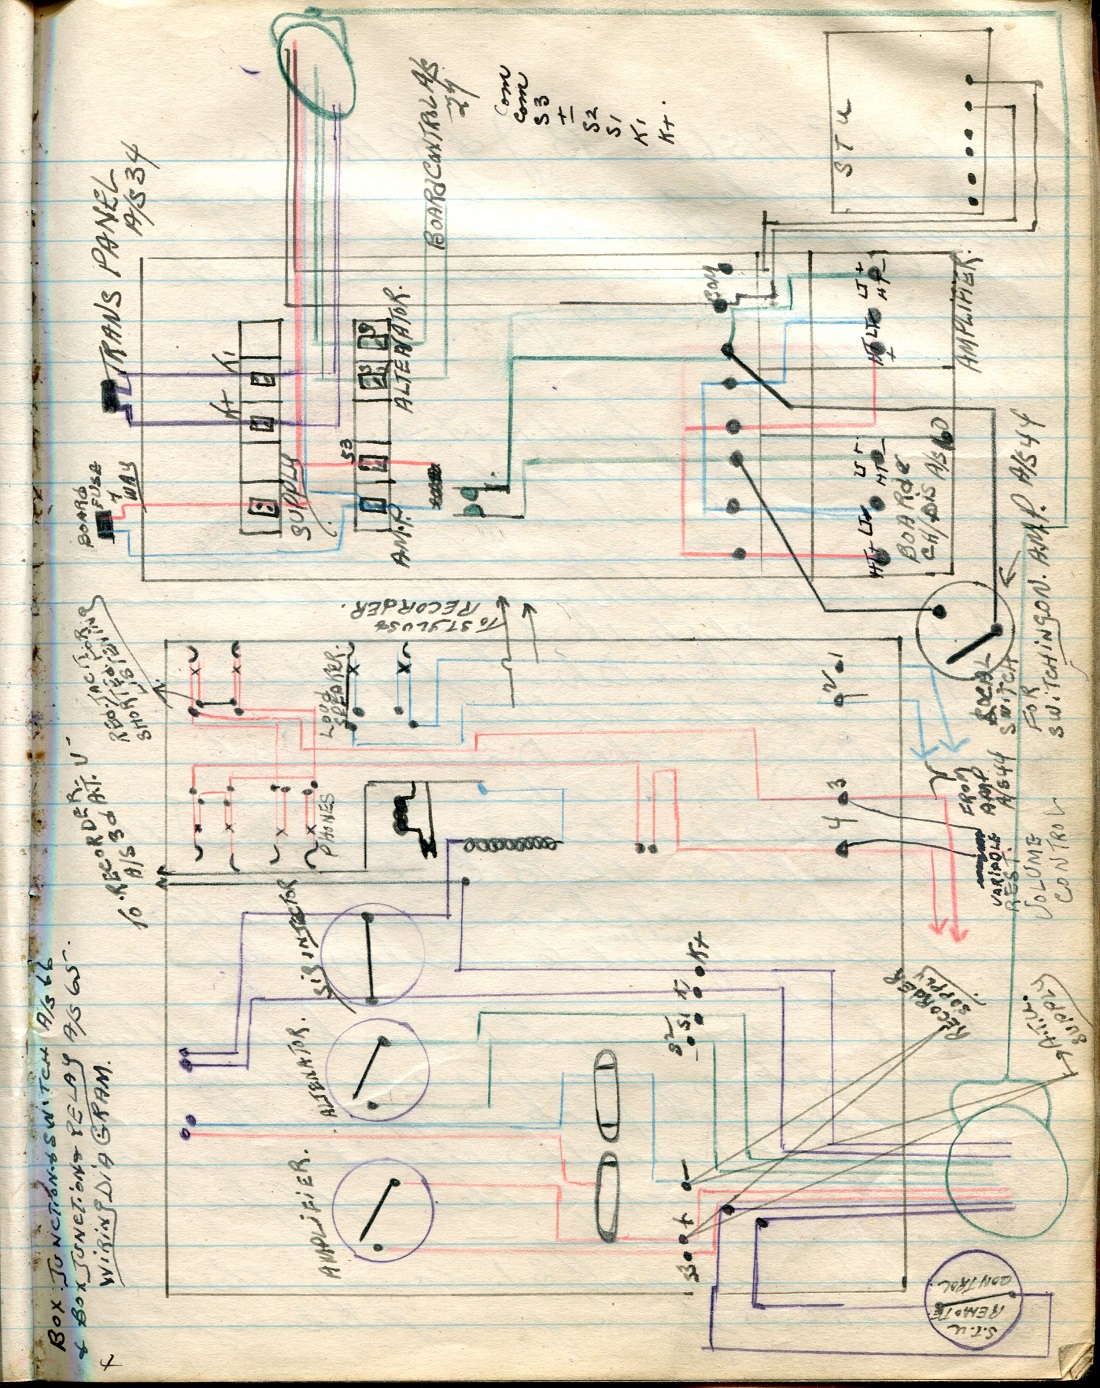 BOX JUNCTION & SWITCH A/S 66
& BOX JUNCTION & RELAY A/S 65.
WIRING DIAGRAM.
TO RECORDER
A/S 30 A.T. V
TRANS PANEL
A/S 34
BOARD
FUSE
4
WAY
K+ K1
SUPPLY
S3
AMP. ALTERNATOR.
BOARD CONTROL A/S
29
COM
COM
S3
+
S2
S1
K1
K+.
STU
COM
LT+
HT-
LT-
HT+
AMPLIFIER.
LT+
HT-
LT-
HT+
BOARD
A/S 60
TO STYLUS &
RECORDER.
LOUD
SPEAKER.
PHONES
2 1
4 3
SWITCH
FOR
SWITCHING ON. AMP. A/S 44
FROM
AMP
A/S 44
VARIABLE
REST.
VOLUME
CONTROL
AMPLIFIER.
ALTERNATOR.
S3 + -
S2 S1 K1 K+
RECORDER
SUPPLY
SUPPLY
S.T.U
REMOTE
CONTROL.